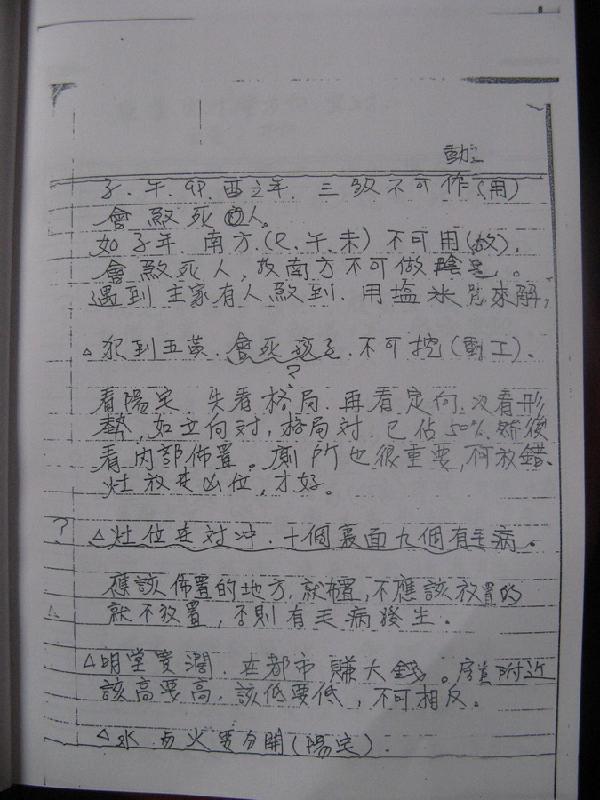 子、午、卯、酉之年、三煞不可作(用)
會煞死人。
如子年、南方.(巳、午、未)不可用(放).
會煞死人,故南方不可做陰宅。
遇到主家有人煞到、用塩米來解,
△犯到五黃、會死、不可挖(動工)、
?
看陽宅、先看格局、再看定向、次看形
勢,如立向对,格局対、已佔50%、然後
看內部佈置。廁所也很重要,何放錯、
灶放在凶位,才好。
? △灶位在対冲、十個裏面九個有毛病。
應該佈置的地方,就佈置,不應該放置的
就不放置,否則有毛病發生。
△明堂要濶、在都市賺大錢。房附近
該高要高、該低要低,不可相反。
△水与火要分開(陽宅).